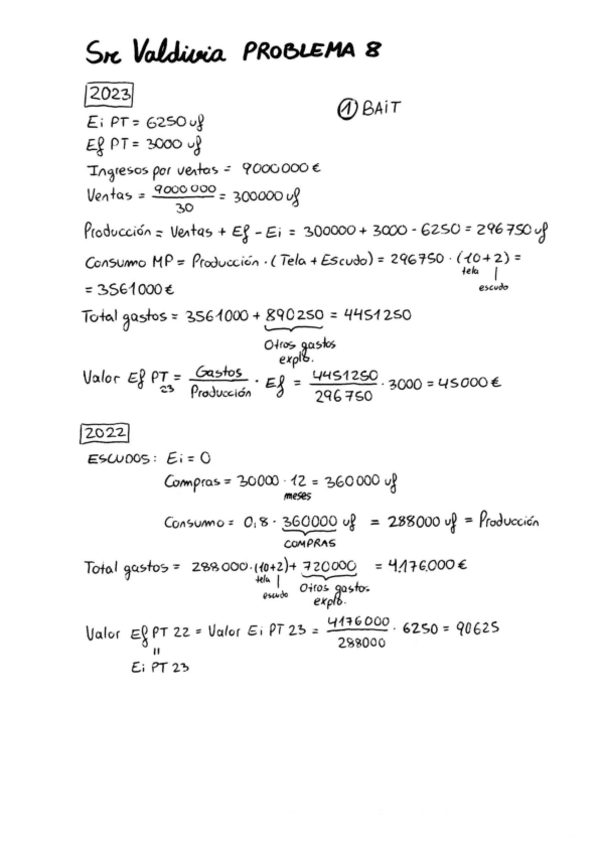 Sre Valdivia PROBLEMA 8
2023
① BAIT
Ei PT = 6250 uf
Ef PT = 3000 uf
Ingresos por ventas = 9000000 €
Ventas = 9000000 / 30 = 300000 uf
Producción = Ventas + Ef - Ei = 300000 + 3000 - 6250 = 296750 uf
Consumo MP = Producción · (Tela + Escudo) = 296750 · (10+2) =
tela | escudo
= 3561000 €
Total gastos = 3561000 + 890250 = 4451250
Otros gastos
explo.
Valor Ef PT 23 = Gastos / Producción · Ef = 4451250 / 296750 · 3000 = 45000 €
2022
ESCUDOS: Ei = 0
Compras = 30000 · 12 = 360000 uf
meses
Consumo = 0,8 · 360000 uf = 288000 uf = Producción
COMPRAS
Total gastos = 288000·(10+2)+ 720000 = 4.176.000 €
tela | escudo Otros gastos
explo.
Valor Ef PT 22 = Valor Ei PT 23 = 4176000 / 288000 · 6250 = 90625
=
Ei PT 23